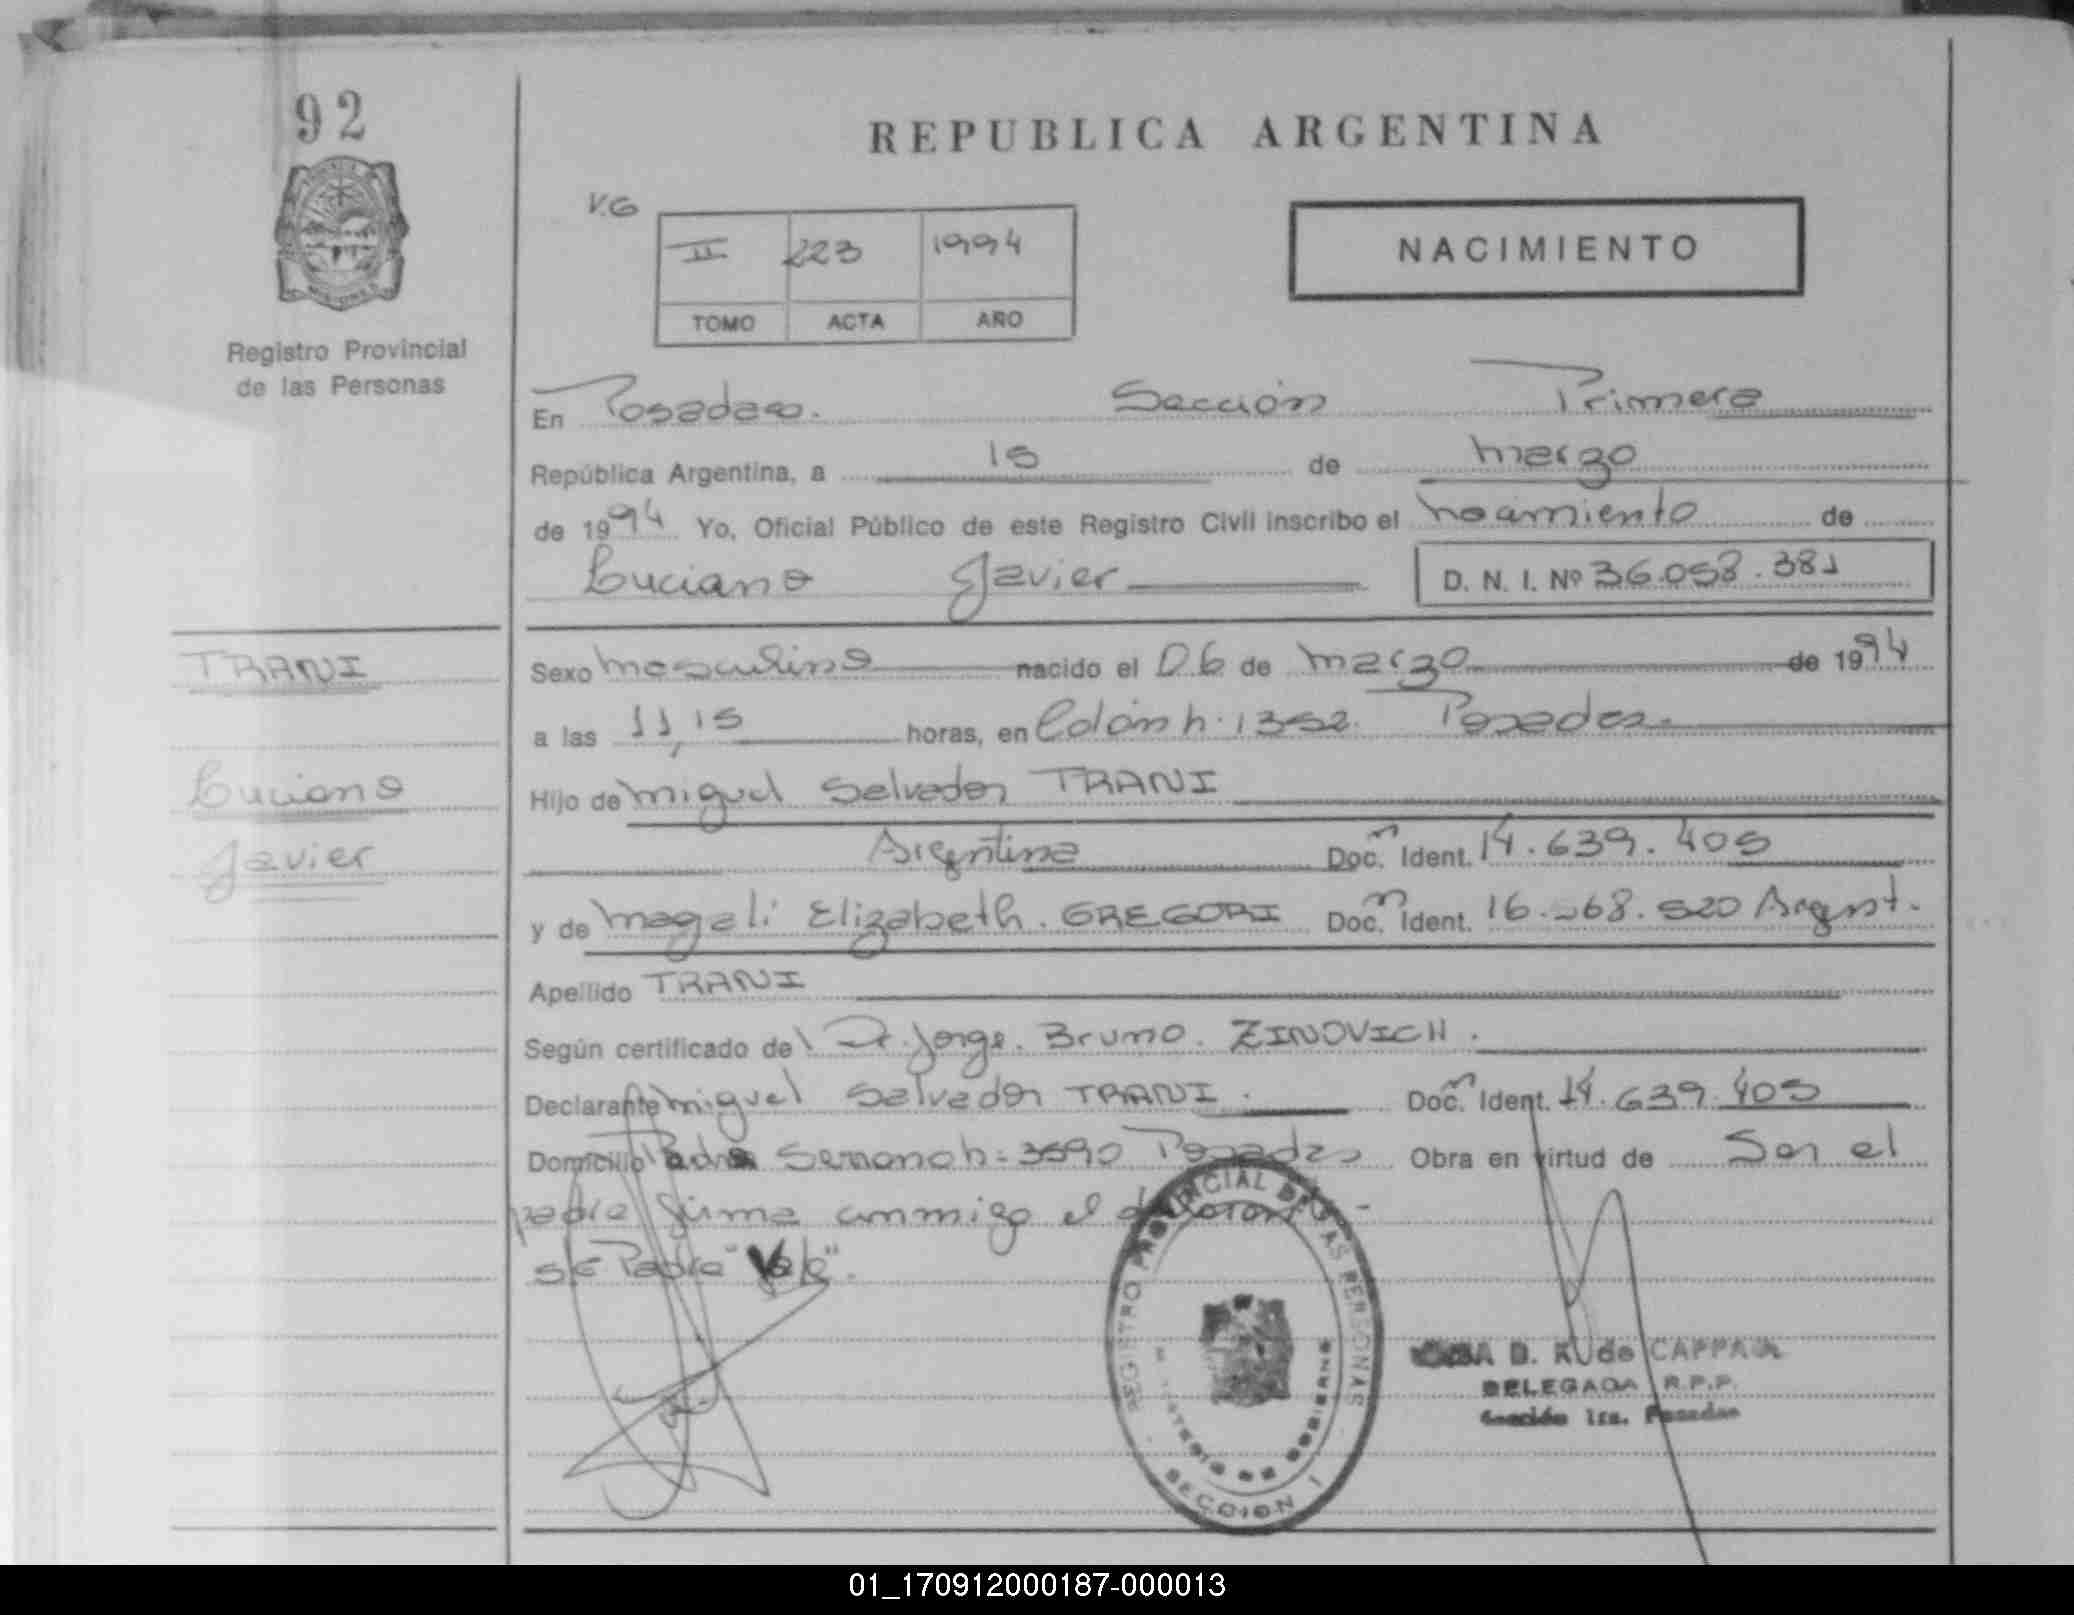 92
REPUBLICA ARGENTINA
V.G
II 223 1994
TOMO ACTA AÑO
NACIMIENTO
Registro Provincial
de las Personas
En Posadas. Sección Primera
República Argentina, a 15 de marzo
de 1994 Yo, Oficial Público de este Registro Civil inscribo el nacimiento de
Luciano Javier D. N. I. Nº 36.058.381
TRANI
Sexo masculino nacido el 06 de marzo de 1994
a las 11,15 horas, en Colón n. 1352. Posadas.
Luciano
Hijo de Miguel Salvador TRANI
Javier
Argentina Doc. Ident. 14.639.405
y de Magali Elizabeth. GREGORI Doc. Ident. 16. 520 Argent.
Apellido TRANI
Según certificado del Dr. Jorge. Bruno. ZINOVICH.
Declarante Miguel Salvador TRANI. Doc. Ident. 14.639.405
Domicilio Padre Serrano n= 3590 Posadas Obra en virtud de Ser el
padre firma conmigo el
Padre "Vale".
REGISTRO PROVINCIAL DE LAS PERSONAS
MINISTERIO DE GOBIERNO
SECCION 1
D. de CAPPA
DELEGADA R.P.P.
Sección 1ra. Posadas
01_170912000187-000013